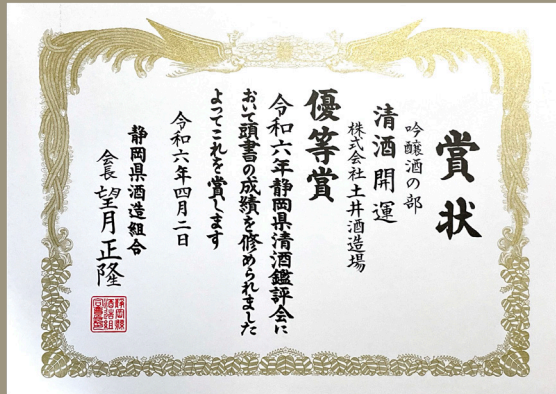 賞状
吟醸酒の部
清酒開運
株式会社土井酒造場
優等賞
令和六年静岡県清酒鑑評会に
おいて頭書の成績を修められました
よってこれを賞します
令和六年四月二日
静岡県酒造組合
会長 望月正隆